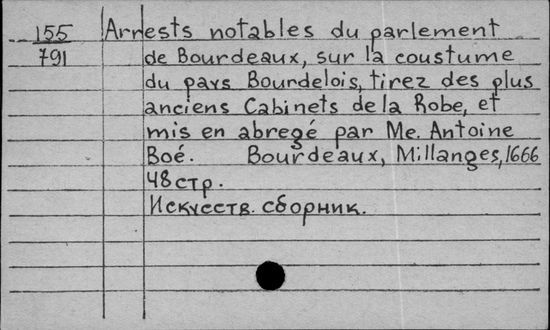 155 Arrests notables du parlement
791 de Bourdeaux, sur la coustume
du pays Bourdelois, tirez des plus
anciens Cabinets de la Robe, et
mis en abregé par Me. Antoine
Boé. Bourdeaux, Millanges, 1666
48 стр.
Искусств. сборник.